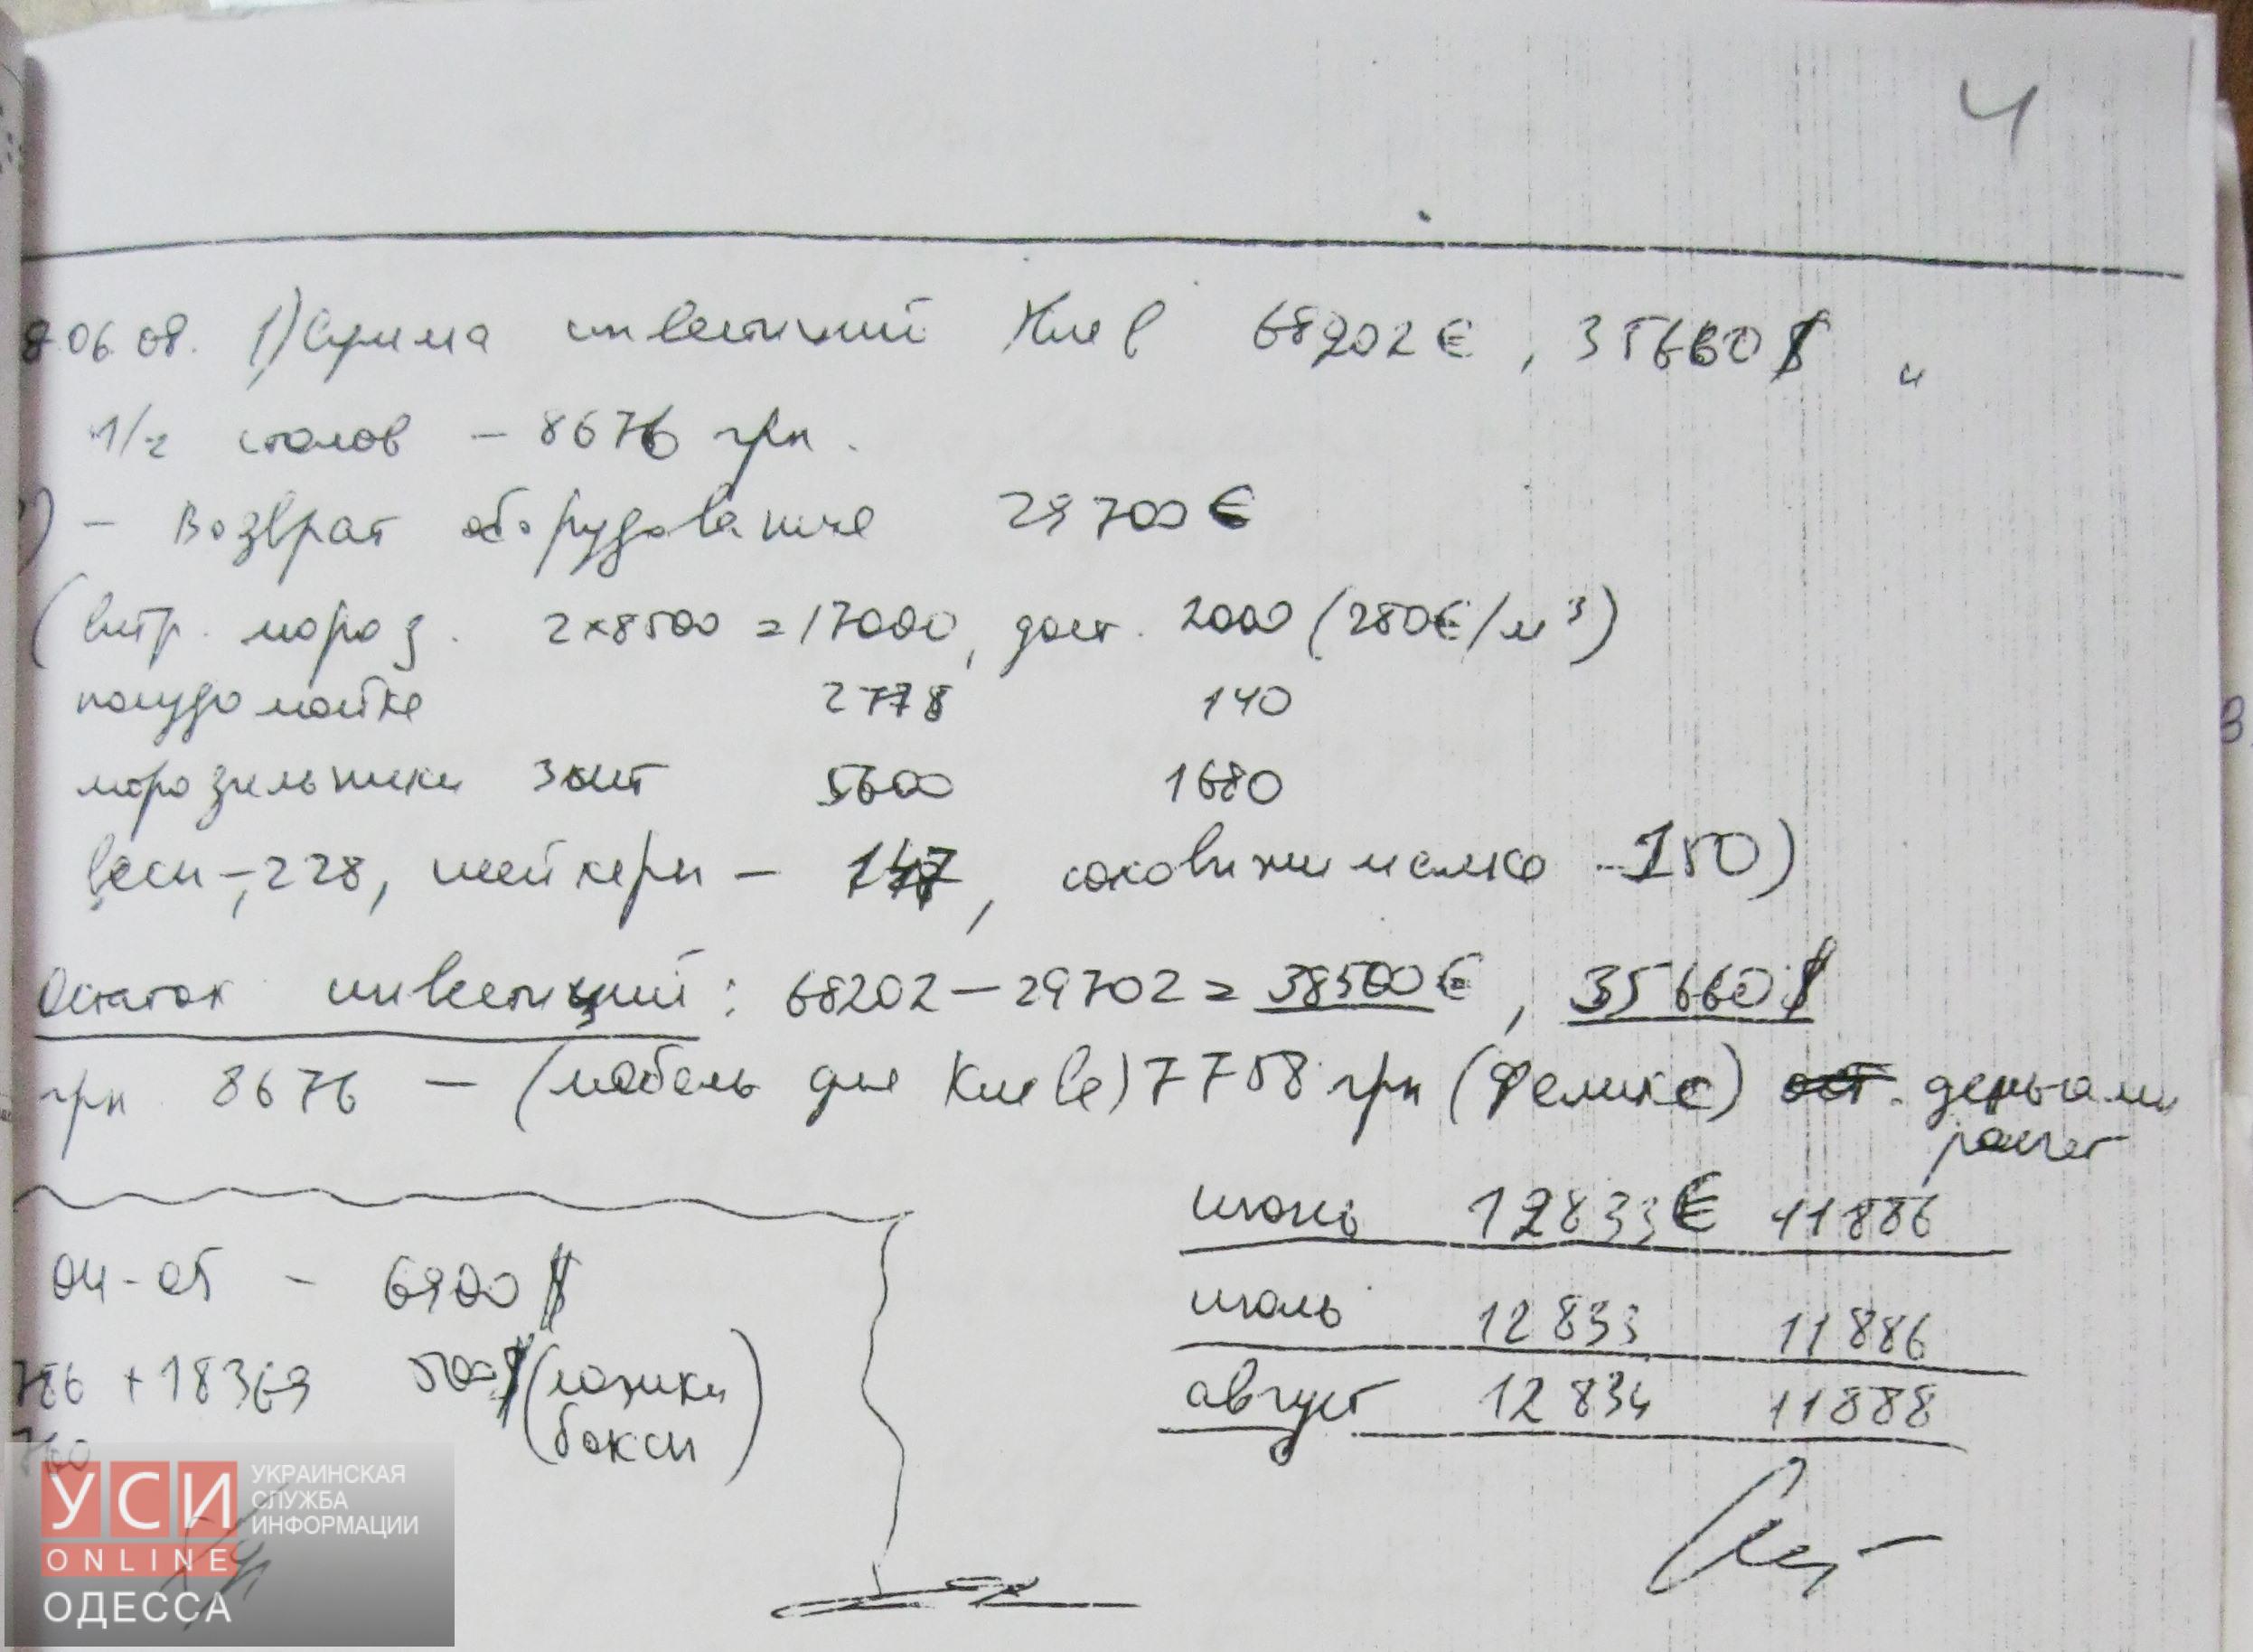 4
8.06.08. 1) Сумма инвестиций Киев 68202€, 35660$ и
1/2 столов – 8676 грн.
) – Возврат оборудование 29700€
(витр. мороз. 2×8500 = 17000, дост. 2000 (280€/м³)
посудомойка 2778 140
морозильники 3шт 5600 1680
весы – 228, шейкеры – 147, соковыжималка – 150)
Остаток инвестиций: 68202 – 29702 = 38500€, 35660$
грн 8676 – (мебель для Киева) 7758 грн (Феликс) ост. деньгами
расчет
июнь 12833€ 11886
июль 12833 11886
август 12834 11888
04-05 – 6900$
786 + 18369 500$ (ложки
боксы)
760
УСИ
ONLINE
ОДЕССА
УКРАИНСКАЯ
СЛУЖБА
ИНФОРМАЦИИ